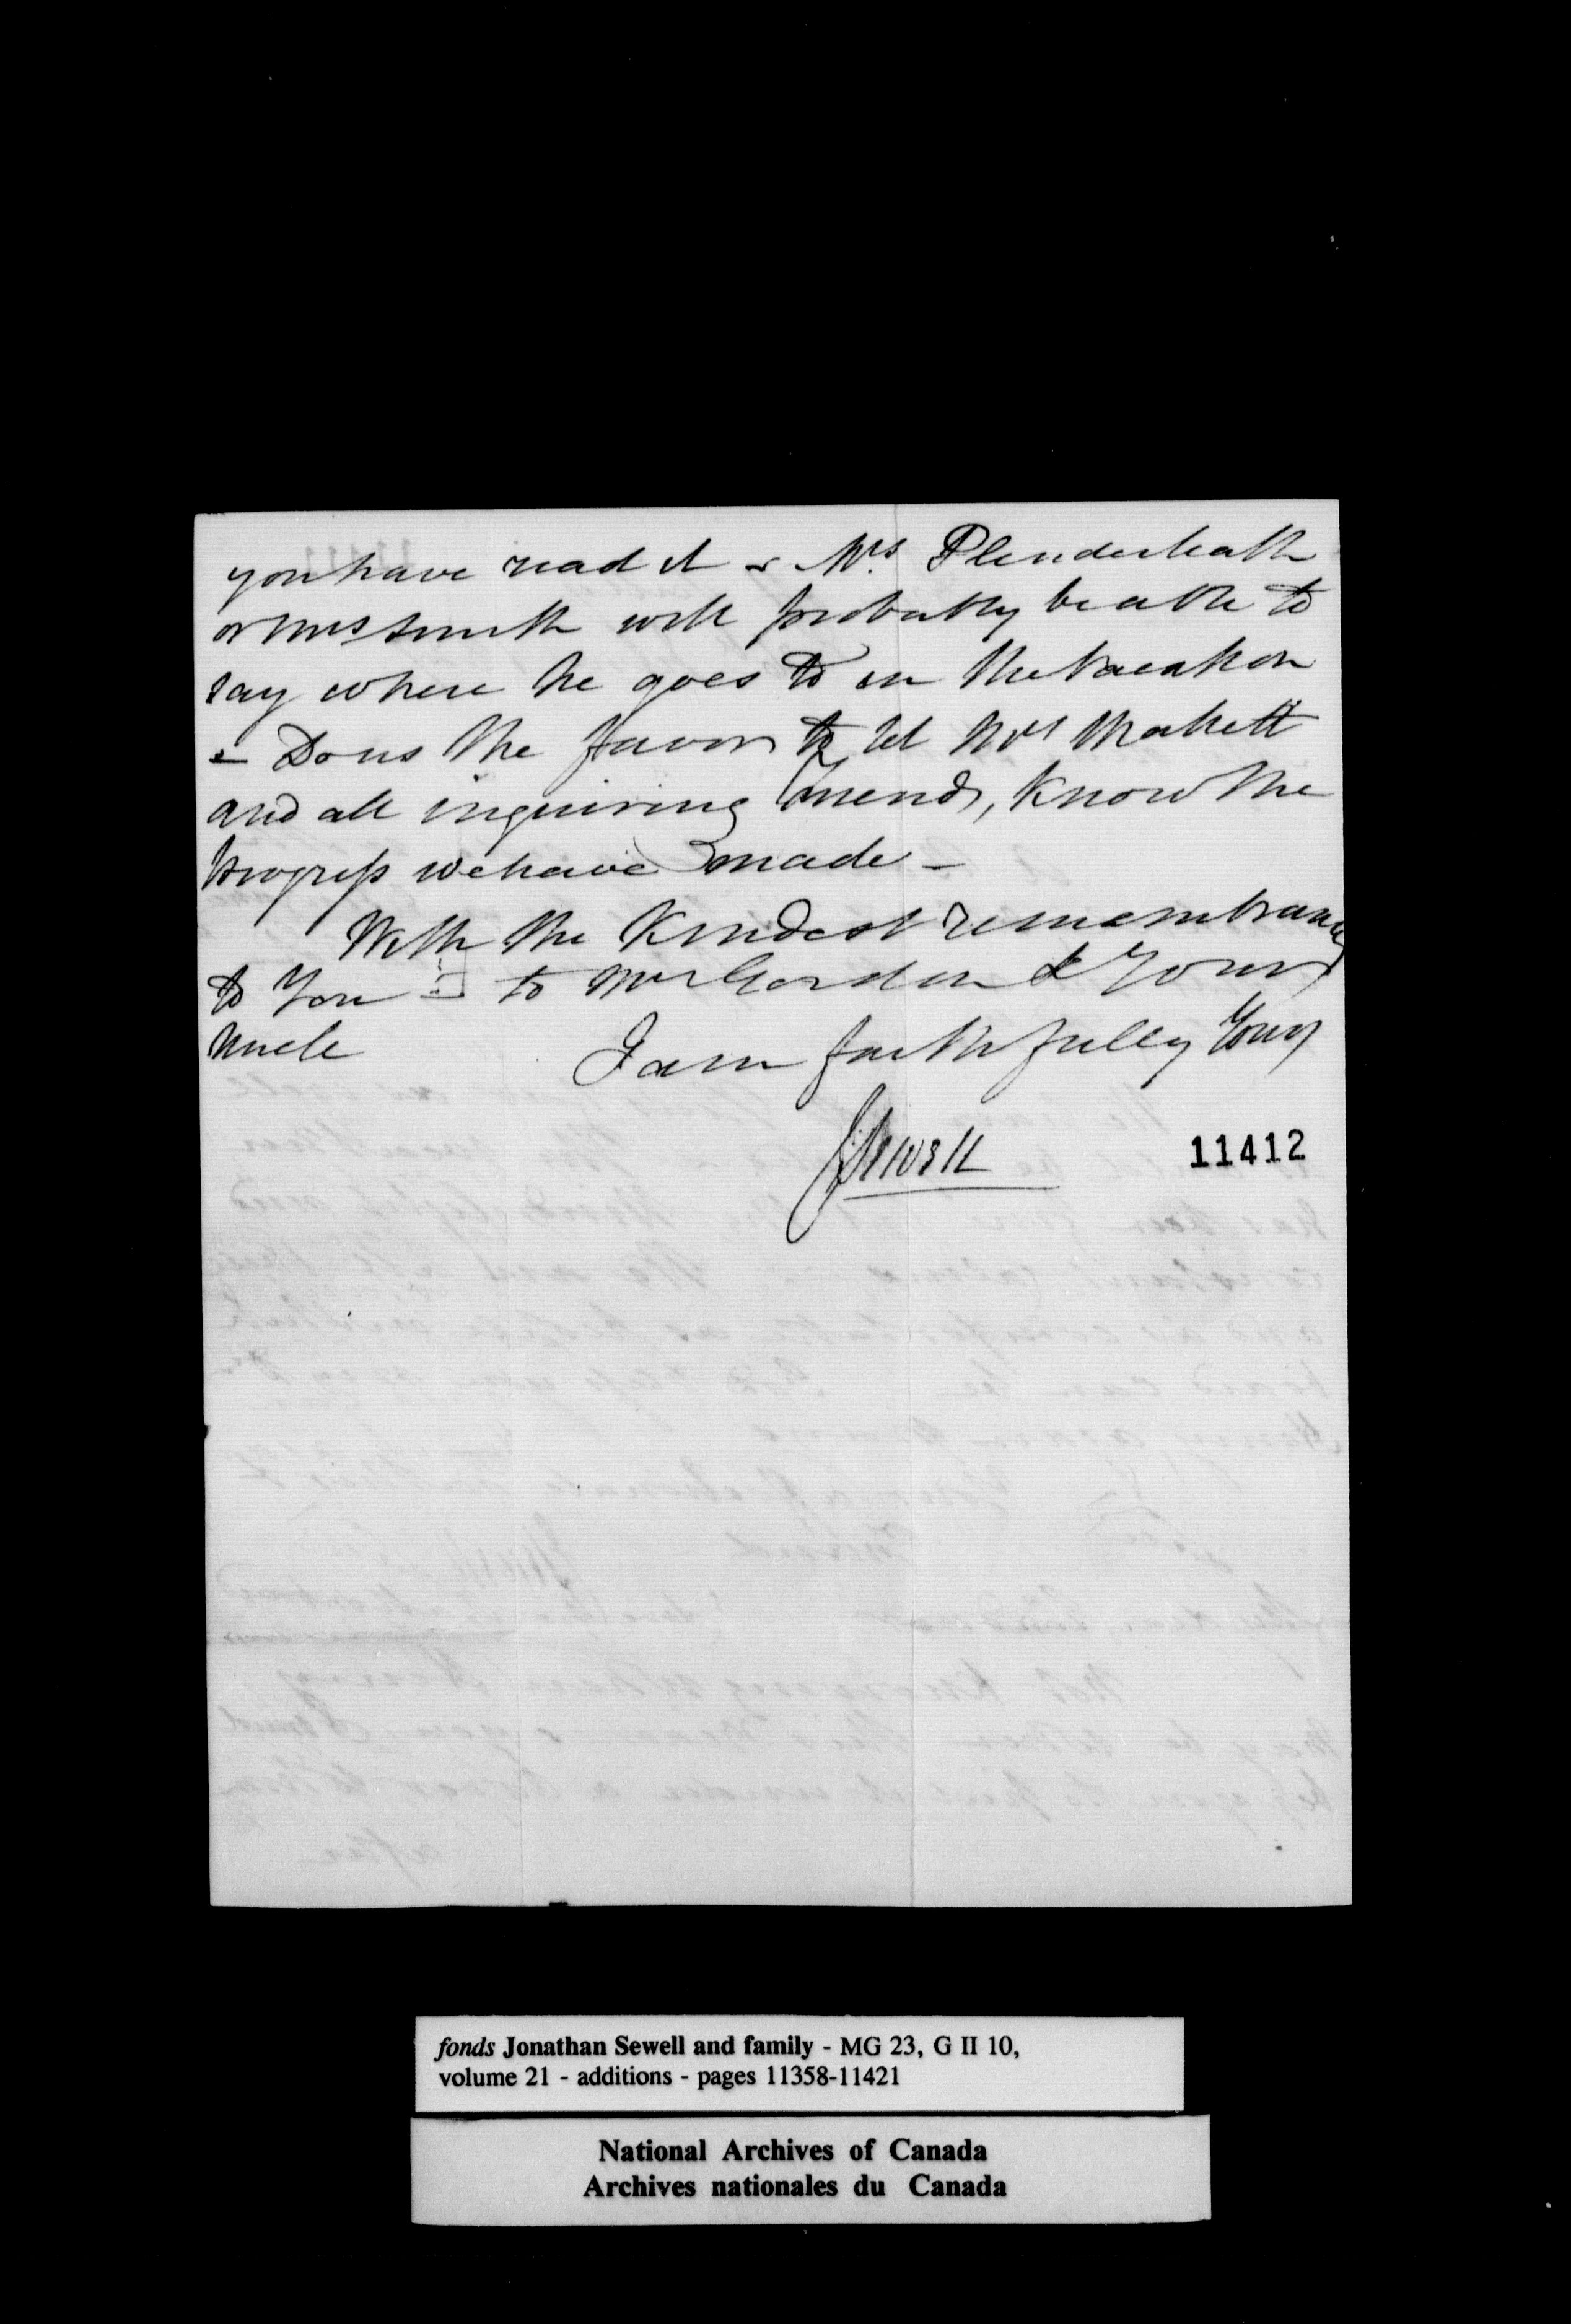 you have read it - Mrs. Plenderleath
or Mrs Smith will probably be able to
say where he goes to in the Vacation
- Do us the favor to let Mrs
and all inquiring friends, know the
progress we have made -
With the Kindest remembrance
to You - to Mr Gordon & Your
Uncle I am faithfully Yours
J Sewell
11412
fonds Jonathan Sewell and family - MG 23, G II 10,
volume 21 - additions - pages 11358-11421
National Archives of Canada
Archives nationales du Canada